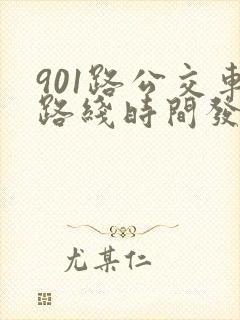 901路公交車
路綫時間發
尤某仁